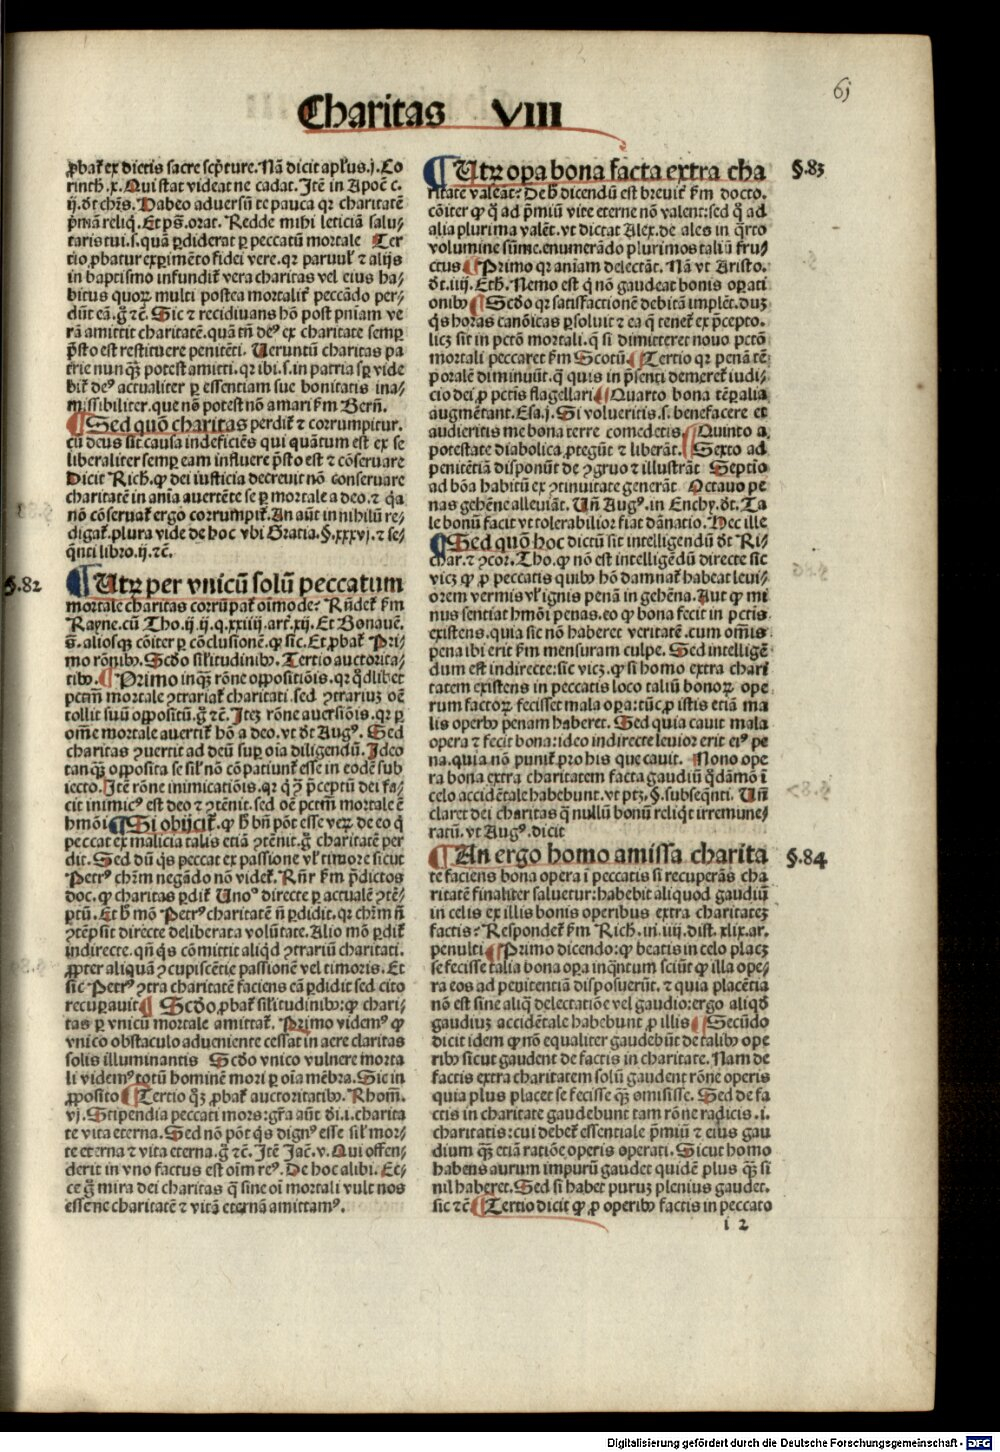 6j
Charitas VIII
ꝓbat̃ ex dictis sacre scp̃ture. Nã dicit apl̃us.j. Co
rinth.x. Qui stat videat ne cadat. Itẽ in Apoč c.
ij. d̃t chr̃s. Habeo adversũ te pauca qꝛ charitatẽ
pͥmã reliq̃. Et ps̃. orat. Redde mihi leticiã salu⸗
taris tui .s. quã ꝑdiderat ꝑ peccatũ mortale Ter
tio ꝓbatur exꝑimẽto fidei vere. qꝛ parvul̃ ⁊ alijs
in baptismo infundit̃ vera charitas vel eius ha⸗
bitus quoꝝ multi postea mortalit̃ peccãdo per⸗
dũt eã. g̃ ⁊č. Sic ⁊ recidivans hõ post pniam ve
rã amittit charitatẽ. quã tñ deꝰ ex charitate semꝑ
p̃sto est restituere penitẽti. Veruntũ charitas pa
trie nunqꝫ potest amitti. qꝛ ibi .s. in patria sꝑ vide
bit̃ deꝰ actualiter ꝑ essentiam sue bonitatis ina⸗
missibiliter. que nõ potest nõ amari ẜm Berñ.
¶ Sed quõ charitas perdit̃ ⁊ corrumpitur.
cũ deus sit causa indeficiẽs qui quãtum est ex se
liberaliter semꝑ eam influere p̃sto est ⁊ cõservare
Dicit Rich. ꝙ dei iusticia decrevit nõ conservare
charitatẽ in ania avertẽte se ꝑ mortale a deo. ⁊ q̃a
nõ cõservat̃ ergo corrumpit̃. An aũt in nihilũ re⸗
digat̃. plura vide de hoc vbi Gratia. §.xxxvj. ⁊ se⸗
q̃nti libro .ij. ⁊č.
§.82
¶ Utꝝ per vnicũ solũ peccatum
mortale charitas corrũpat̃ oĩmode? Rñdet̃ ẜm
Rayne. cũ Tho. ij. ij. q. xxiiij. art̃. xij. Et Bonavẽ.
s̃. aliosqꝫ cõiter ꝑ cõclusionẽ. ꝙ sic. Et ꝓbat̃ Pri⸗
mo rõnibꝰ. Scďo sil̃itudinibꝰ. Tertio auctorita⸗
tibꝰ. ¶ Primo inqꝫ rõne oppositiõis. qꝛ q̃dlibet
pctm̃ mortale ↄtrariat̃ charitati. sed ↄtrariuꝫ oẽ
tollit suũ oppositũ. g̃ ⁊č. Iteꝫ rõne aversiõis. qꝛ ꝑ
om̃e mortale avertit̃ hõ a deo. vt d̃t Augꝰ. Sed
charitas ↄvertit ad deũ suꝑ oĩa diligendũ. Ideo
tanqꝫ opposita se sil̃ nõ cõpatiunt̃ esse in eodẽ sub
iecto. Itẽ rõne inimicatiõis. qꝛ q̃ ↄ̃ p̃ceptũ dei fa⸗
cit inimicꝰ est deo ⁊ ↄtẽnit. sed oẽ pctm̃ mortale ẽ
hmõi ¶ Si obijcit̃. ꝙ h̃ bñ põt esse veꝝ de eo q̃
peccat ex malicia talis etiã ↄtẽnit. g̃ charitatẽ per
dit. Sed dũ q̃s peccat ex passione vl̃ timore sicut
Petrꝰ chr̃m negãdo nõ videt̃. Rñr̃ ẜm p̃dictos
doc. ꝙ charitas ꝑdit̃ Unoº directe ꝑ actualẽ ↄtẽ⸗
ptũ. Et h̃ mõ Petrꝰ charitatẽ ñ ꝑdidit. qꝛ chr̃m ñ
ↄtẽpsit directe deliberata volũtate. Alio mõ ꝑdit̃
indirecte. qñ q̃s cõmittit aliq̃d ↄtrariũ charitati.
ꝓpter aliquã ↄcupiscẽtie passionẽ vel timoris. Et
sic Petrꝰ ↄtra charitatẽ faciens eã ꝑdidit sed cito
recuꝑavit ¶ Scďo ꝓbat̃ sil̃itudinibꝰ: ꝙ chari⸗
tas ꝑ vnicũ mortale amittat̃. Primo videmꝰ ꝙ
vnico obstaculo adveniente cessat in aere claritas
solis illuminantis Scďo vnico vulnere morta
li videmꝰ totũ hominẽ mori ꝑ oĩa mẽbra. Sic in
ꝓposito ¶ Tertio q̃ꝫ ꝓbat̃ auctoritatibꝰ. Rhom.
vj. Stipendia peccati mors: gr̃a aũt d̃i .i. charita
te vita eterna. Sed nõ põt q̃s dignꝰ esse sil̃ mor⸗
te eterna ⁊ vita eterna. g̃ ⁊č. Itẽ Jač. v. Qui offen⸗
derit in vno factus est oĩm reꝰ. De hoc alibi. Ec⸗
ce g̃ mira dei charitas q̃ sine oĩ mortali vult nos
esse ne charitatẽ ⁊ vitã eternã amittamꝰ.
§.83
¶ Utꝝ oꝑa bona facta extra cha
ritate valeãt? De h̃ dicendũ est brevit̃ ẜm docto.
cõiter ꝙ q̃ ad p̃miũ vite eterne nõ valent: sed q̃ ad
alia plurima valẽt. vt dictat Alex. de ales in q̃rto
volumine sũme. enumerãdo plurimos taliũ fru⸗
ctus ¶ Primo qꝛ aniam delectãt. Nã vt Aristo.
d̃t. iiij. Eth. Nemo est q̃ nõ gaudeat bonis oꝑati
onibꝰ ¶ Scďo qꝛ satisfactionẽ debitã implẽt. duꝫ
q̃s horas canõicas ꝑsoluit ⁊ ea q̃ tenet̃ ex p̃cepto.
licꝫ sit in pctõ mortali. q̃ si dimitteret novo pctõ
mortali peccaret ẜm Scotũ. ¶ Tertio qꝛ penã tẽ
poralẽ diminuũt. q̃ quis in p̃senti demeret̃ iudi⸗
cio dei ꝓ pctis flagellari ¶ Quarto bona tẽꝑalia
augmẽtant. Esa. j. Si volueritis .s. benefacere et
audieritis me bona terre comedetis. ¶ Quinto a
potestate diabolica ꝓtegũt ⁊ liberãt. ¶ Sexto ad
penitẽtiã disponũt de ↄgruo ⁊ illustrãt Septio
ad bõa habitũ ex ↄtinuitate generãt Octavo pe
nas gehẽne alleviãt. Uñ Augꝰ. in Enchy. d̃t. Ta
le bonũ facit vt tolerabilior fiat dãnatio. Hec ille
¶ Sed quõ hoc dictũ sit intelligendũ d̃t Ri⸗
char. ⁊ ↄcor. Tho. ꝙ nõ est intelligẽdũ directe sic
vicꝫ ꝙ ꝓ peccatis quibꝰ hõ damnat̃ habeat levi⸗
orem vermis vl̃ ignis penã in gehẽna. Aut ꝙ mi
nus sentiat hmõi penas. eo ꝙ bona fecit in pctis
existens. quia sic nõ haberet veritatẽ. cum om̃is
pena ibi erit ẜm mensuram culpe. Sed intelligẽ
dum est indirecte: sic vicꝫ. ꝙ si homo extra chari
tatem existens in peccatis loco taliũ bonoꝝ ope
rum factoꝝ fecisset mala oꝑa: tũc ꝓ istis etiã ma
lis operibꝰ penam haberet. Sed quia cavit mala
opera ⁊ fecit bona: ideo indirecte levior erit eiꝰ pe
na. quia nõ punit̃ pro his que cavit. Nono ope
ra bona extra charitatem facta gaudiũ q̃dãmõ ĩ
celo accidẽtale habebunt. vt ptꝫ. §. subseq̃nti. Uñ
claret dei charitas q̃ nullũ bonũ reliq̃t irremune⸗
ratũ. vt Augꝰ. dicit
§.84
¶ An ergo homo amissa charita
te faciens bona opera ĩ peccatis si recuperãs cha
ritatẽ finaliter saluetur: habebit aliquod gaudiũ
in celis ex illis bonis operibus extra charitateꝫ
factis? Respondet̃ ẜm Rich. in. iiij. dist. xlix. ar.
penulti ¶ Primo dicendo: ꝙ beatis in celo placꝫ
se fecisse talia bona oꝑa inq̃ntum sciũt ꝙ illa ope⸗
ra eos ad penitentiã disposuerũt. ⁊ quia placẽtia
nõ est sine aliq̃ delectatiõe vel gaudio: ergo aliq̃d
gaudiuꝫ accidẽtale habebunt ꝓ illis ¶ Secũdo
dicit idem ꝙ nõ equaliter gaudebũt de talibꝰ ope
ribꝰ sicut gaudent de factis in charitate. Nam de
factis extra charitatem solũ gaudent rõne operis
quia plus placet se fecisse qꝫ omisisse. Sed de fa
ctis in charitate gaudebunt tam rõne radicis .i.
charitatis: cui debet̃ essentiale p̃miũ ⁊ eius gau
dium qꝫ etiã ratiõe operis operati. Sicut homo
habens aurum impurũ gaudet quidẽ plus qꝫ si
nil haberet. Sed si habet puruꝫ plenius gaudet.
sic ⁊č ¶ Tertio dicit ꝙ ꝓ operibꝰ factis in peccato
i 2
Digitalisierung gefördert durch die Deutsche Forschungsgemeinschaft - DFG